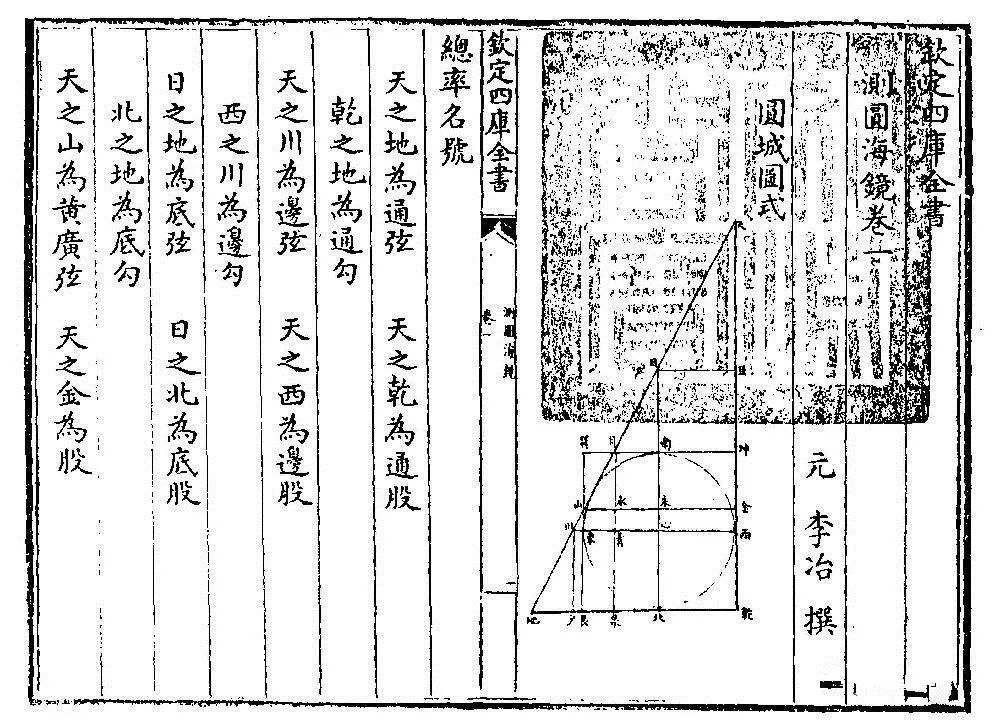 欽定四庫全書
測圓海鏡卷一
元 李冶 撰
圓城圖式
天
日
旦
巽
月
南
坤
山
泉
金
川
東
青
心
西
地
夕
艮
泉
北
乾
欽定四庫全書
測圓海鏡
卷一
一
總率名號
天之地為通弦 天之乾為通股
乾之地為通勾
天之川為邊弦 天之西為邊股
西之川為邊勾
日之地為底弦 日之北為底股
北之地為底勾
天之山為黄廣弦 天之金為股